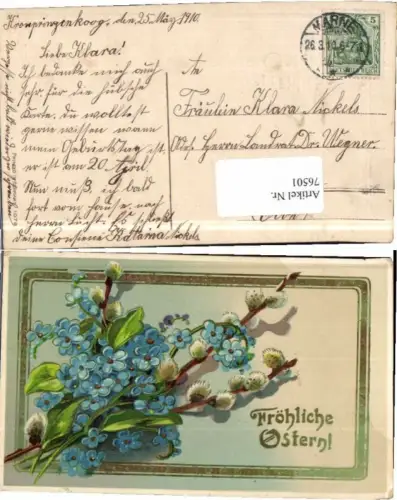 Kronprinzenkoog, den 25. März 1910.
Liebe Klara!
Ich bedanke mich auch
sehr für die hübsche
Karte. du wolltest
gerne wissen wann
mein Geburtstag ist,
er ist am 20. April
Nun muß ich bald
fort vom hause, nach
Herrn Es
deine Cousine Katarina Nickels
An
Fräulein Klara Nickels
Herrn Landrat Dr. Wegner.
MARNE
26.3.10.6-7
5
Artikel Nr.
76501
Fröhliche
Ostern!